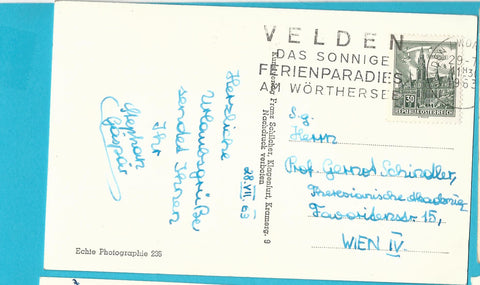 28.VII.63
Herzliche
Urlaubsgrüße
sendet Ihnen
Ihr
Stephan
Gáspár
Echte Photographie 235
Kunstverlag Franz Schilcher, Klagenfurt, Kramerg. 9
Nachdruck verboten
VELDEN
DAS SONNIGE
FERIENPARADIES
AM WÖRTHERSEE
REPUBLIK ÖSTERREICH
S.g.
Herrn
Prof. Gernot Schindler,
Theresianische Akademie
Favoritenstr. 15,
WIEN IV.